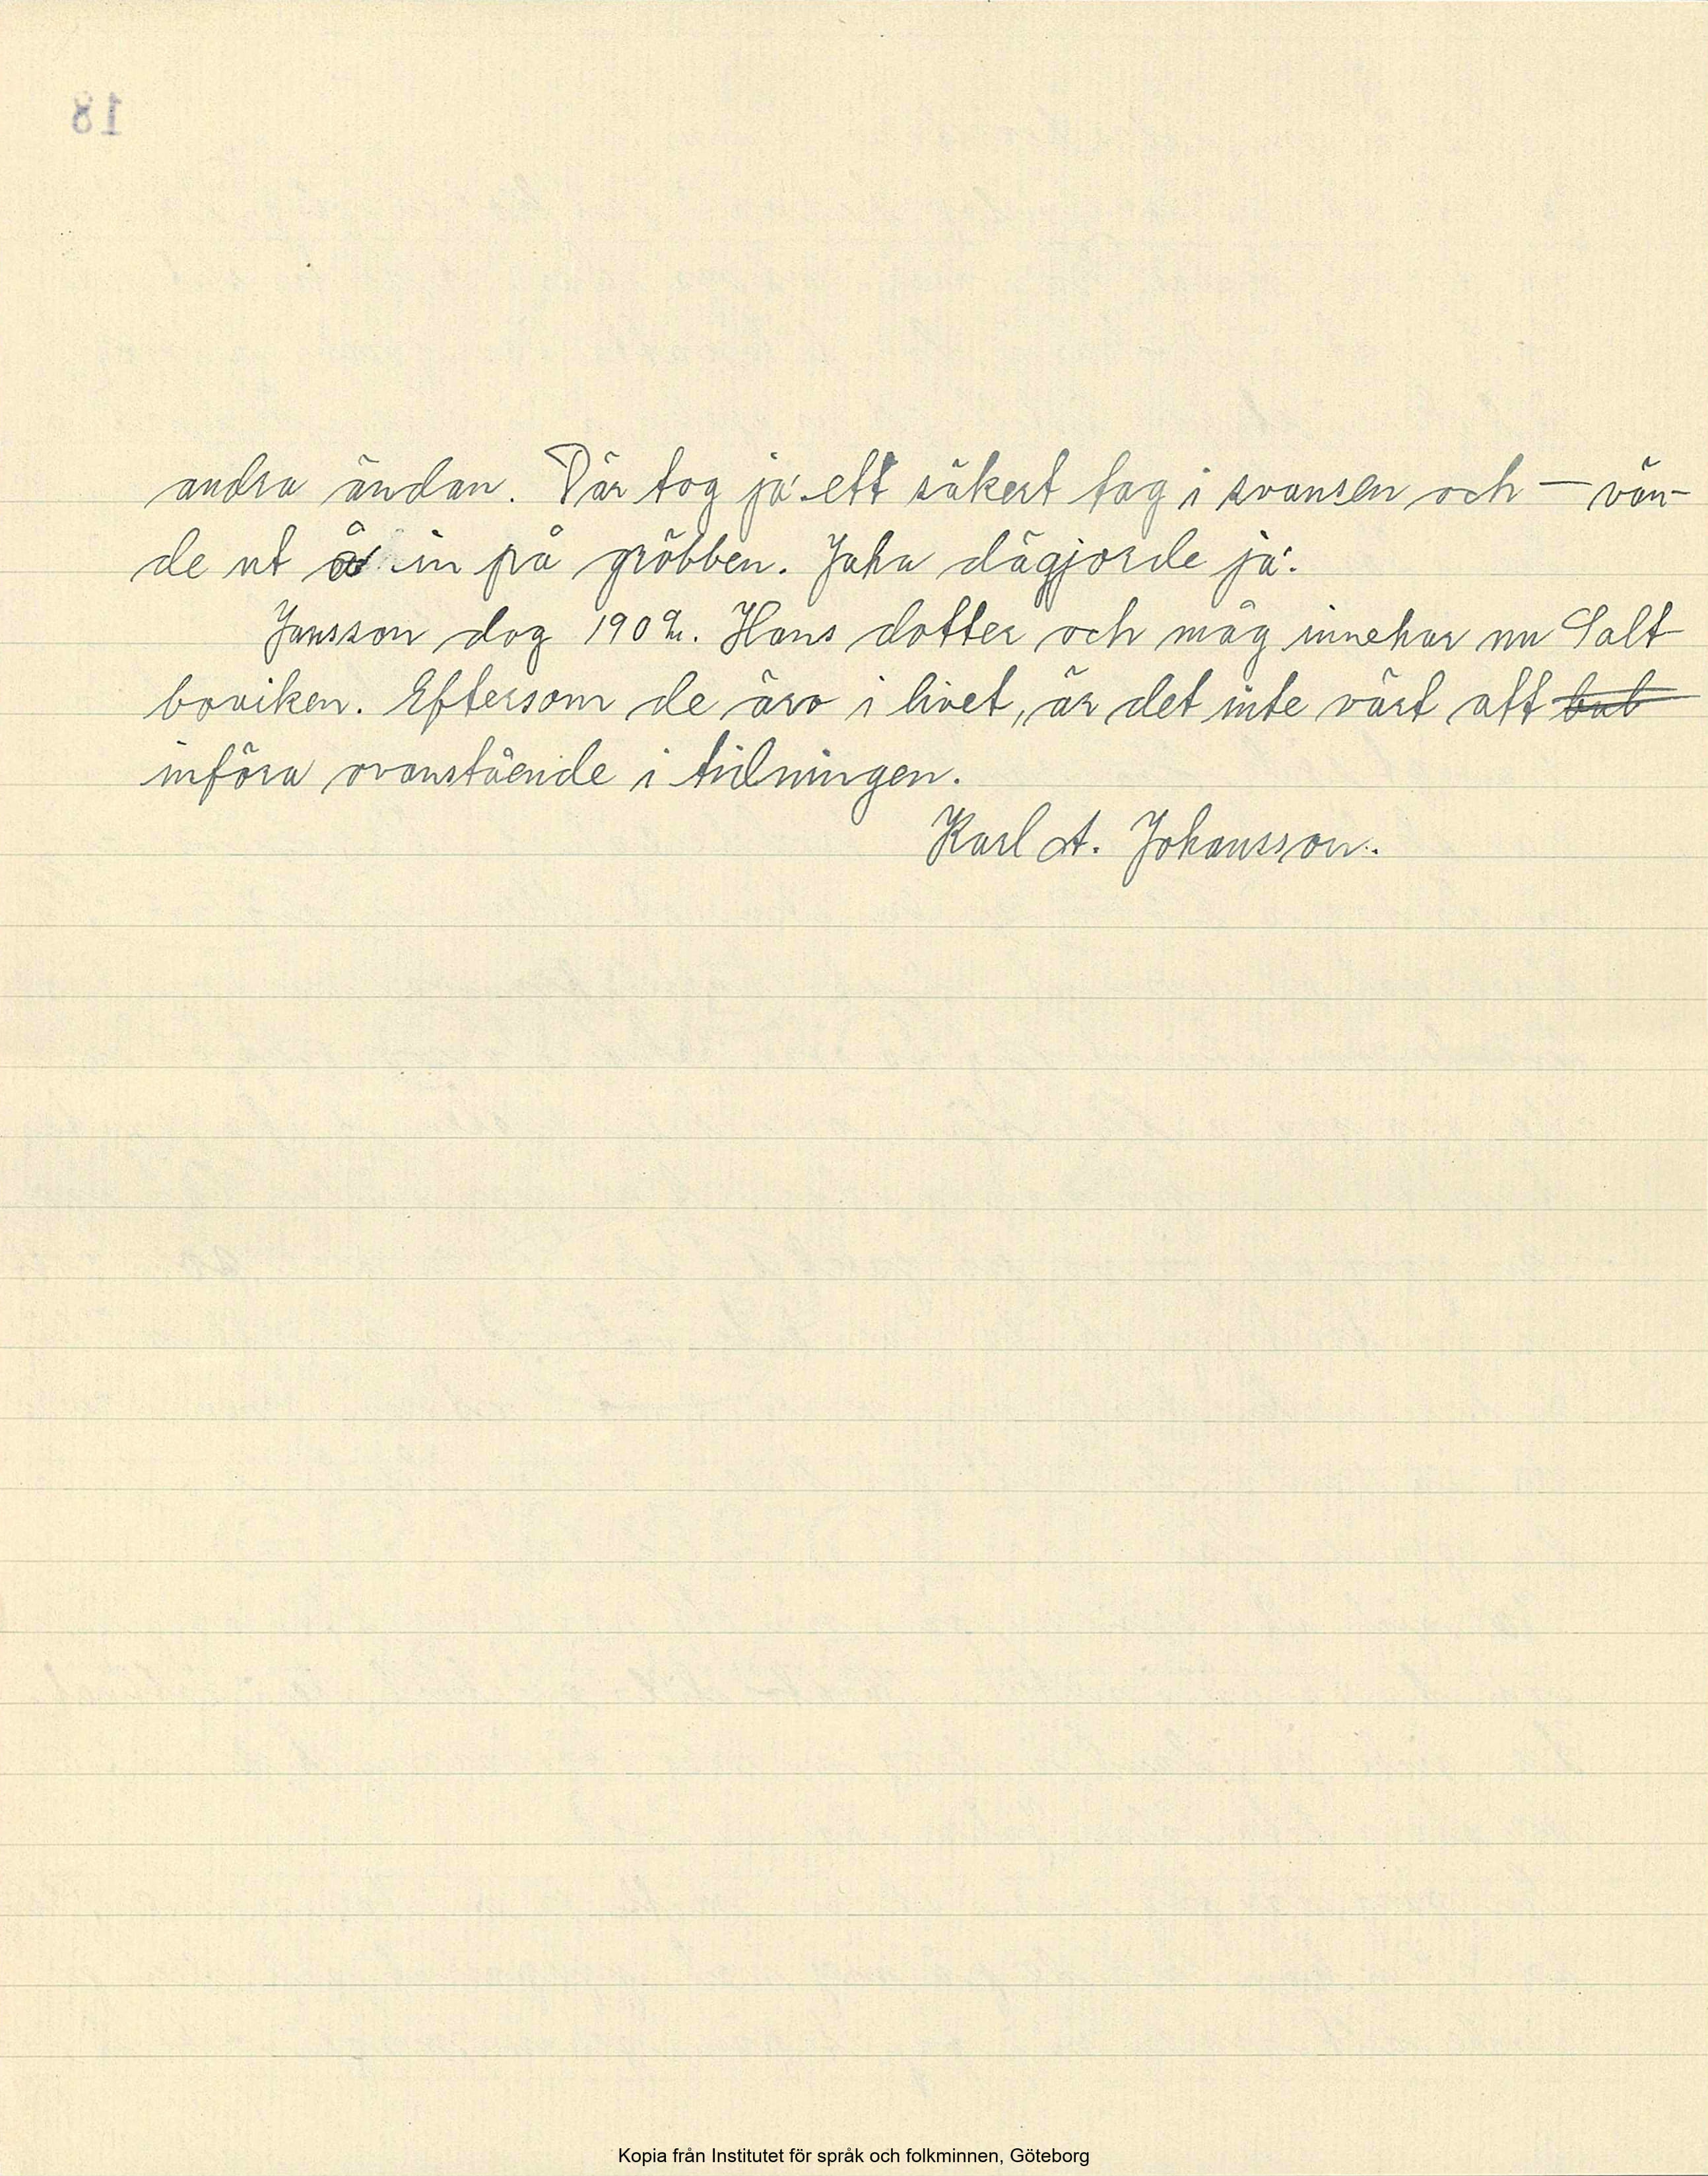 18
andra ändan. Där tog ja' ett säkert tag i svansen och — vän-
de ut å in på gröbben. Jaha dä gjorde ja'.
Jansson dog 190 Hans dotter och måg innehar nu Salt
boviken. Eftersom de äro i livet, är det inte värt att
införa ovanstående i tidningen.
Karl A. Johansson.
Kopia från Institutet för språk och folkminnen, Göteborg